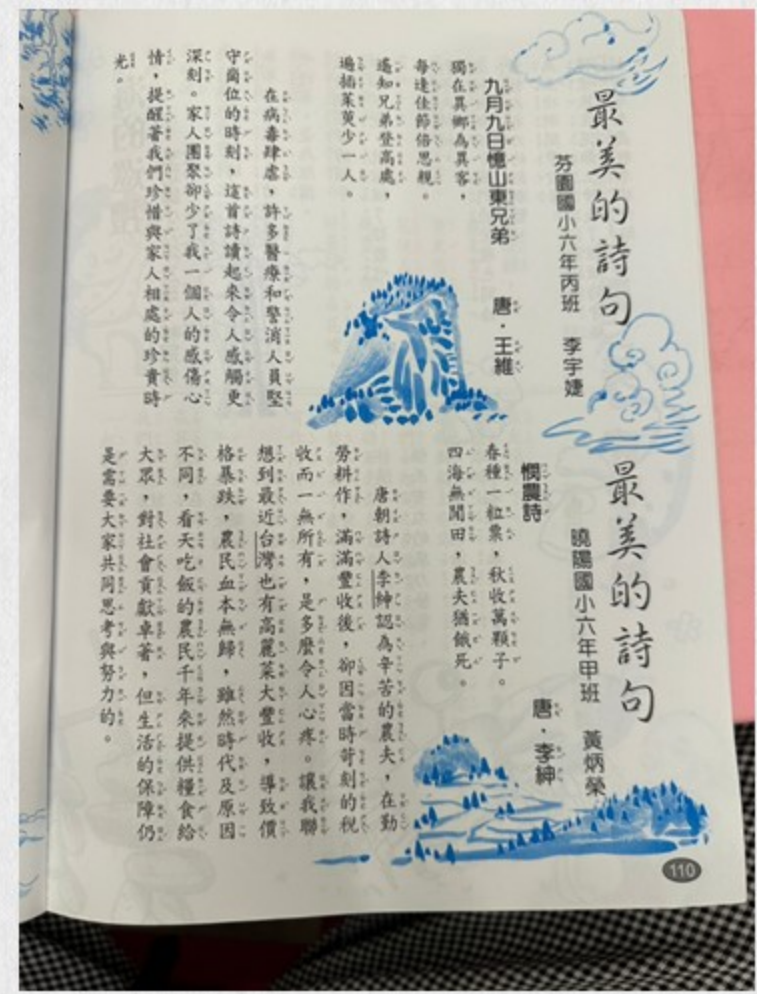 最美的詩句
芬園國小六年丙班　李宇婕
九月九日憶山東兄弟　唐．王維
獨在異鄉為異客，
每逢佳節倍思親。
遙知兄弟登高處，
遍插茱萸少一人。
在病毒肆虐，許多醫療和警消人員堅
守崗位的時刻，這首詩讀起來令人感觸更
深刻。家人團聚卻少了我一個人的感傷心
情，提醒著我們珍惜與家人相處的珍貴時
光。
最美的詩句
曉陽國小六年甲班　黃炳榮
憫農詩　唐．李紳
春種一粒粟，秋收萬顆子。
四海無閒田，農夫猶餓死。
唐朝詩人李紳認為辛苦的農夫，在勤
勞耕作，滿滿豐收後，卻因當時苛刻的稅
收而一無所有，是多麼令人心疼。讓我聯
想到最近台灣也有高麗菜大豐收，導致價
格暴跌，農民血本無歸，雖然時代及原因
不同，看天吃飯的農民千年來提供糧食給
大眾，對社會貢獻卓著，但生活的保障仍
是需要大家共同思考與努力的。
110